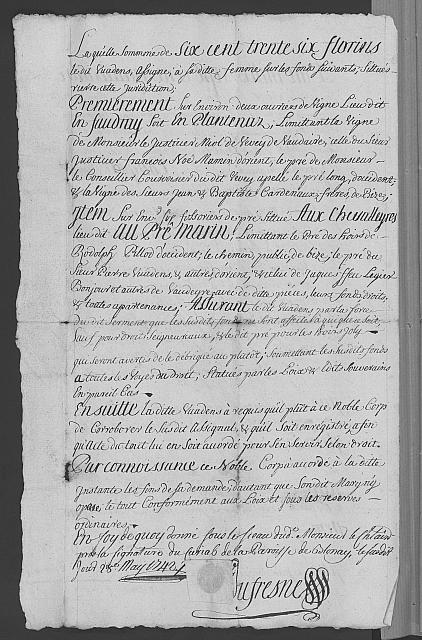 Laquelle sommes de six cent trente six florins
ledit Vuadens, assigne, à sa ditte femme sur les fonds suivants, sittués
riere cette juridiction;
Premierement sur environ deux ouvriers de Vigne Lieu dit
En Saudray soit En Plantenaz, Limittant la Vigne
de Monsieur le Justicier Miol de Vevey de Vaudaire, celle du Sieur
Justicier françois Noé Mamin d'orient, le pré de Monsieur
le Conseiller Couvreu du dit Vevey, apellé le pré long, d'occident,
& la Vigne des Sieurs Jean & Baptiste Cardenaux freres, de Bize;
Item sur fossoriers de pré sittué Aux Chevalleyres
lieu dit au Pré marin, Limittant le Pré des hoirs de
Rodolph Pillod d'occident, le chemin public de bize, le pré du
Sieur Pierre Vuadens, & autres d'orient, & celui de Jaques Leyier
Bonjour et autres de Vaudeyre, avec de ditte pièces, leurs fonds, droits,
& toutes apartenances; Assurant le dit Vuadens par la force
du dit serment que les susdits fonds ne sont affectés à quoique ce soit,
sauf pour droit seigneuriaux, & le dit pré pour les hoirs
qui seront avertis de le débrigue au plutôt; Soumettant les susdits fonds
à toutes les voyes du droit, statués par les Loix & Edits souverains
en pareil cas.
Ensuitte la ditte Vuadens à requis qu'il plût à ce Noble Corp
de Corroborer le susdit assignal, & qu'il soit enregistré, afin
qu'acte du tout lui en soit accordé pour s'en servir selon droit.
Par connoissance ce Noble Corp à accordé à la ditte
Instante les fins de sa demande, d'autant que son dit Mary n'y
opose, le tout conformément aux Loix et sous les reserves
ordinaires.
En foy de quoy donné sous le sceau dud. Monsieur le Châtelain
& la signature du de la Paroisse de , le susdit
Jour 28e May 1742
Dufresne